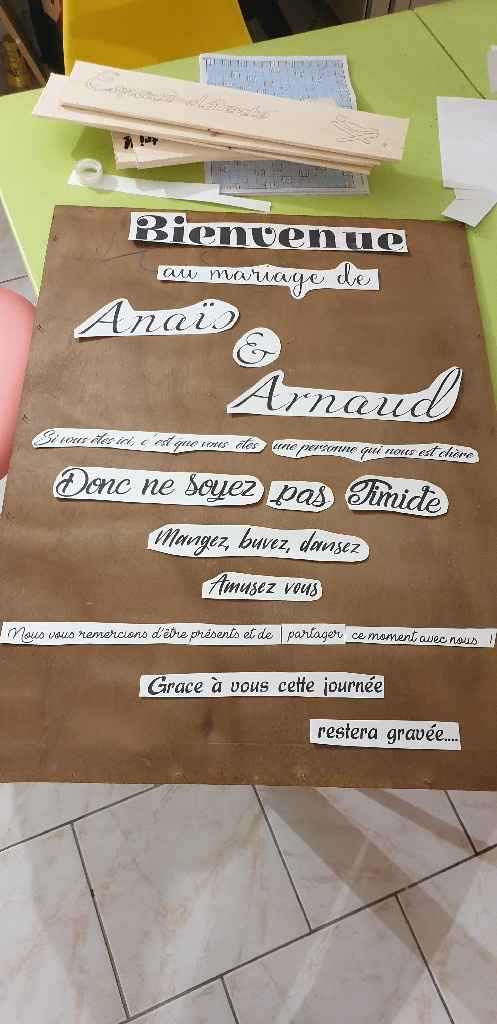 Espace détente
Bienvenue
au mariage de
Anaïs
&
Arnaud
Si vous êtes ici, c'est que vous êtes une personne qui nous est chère
Donc ne soyez pas Timide
Mangez, buvez, dansez
Amusez vous
Nous vous remercions d'être présents et de partager ce moment avec nous !
Grace à vous cette journée
restera gravée....